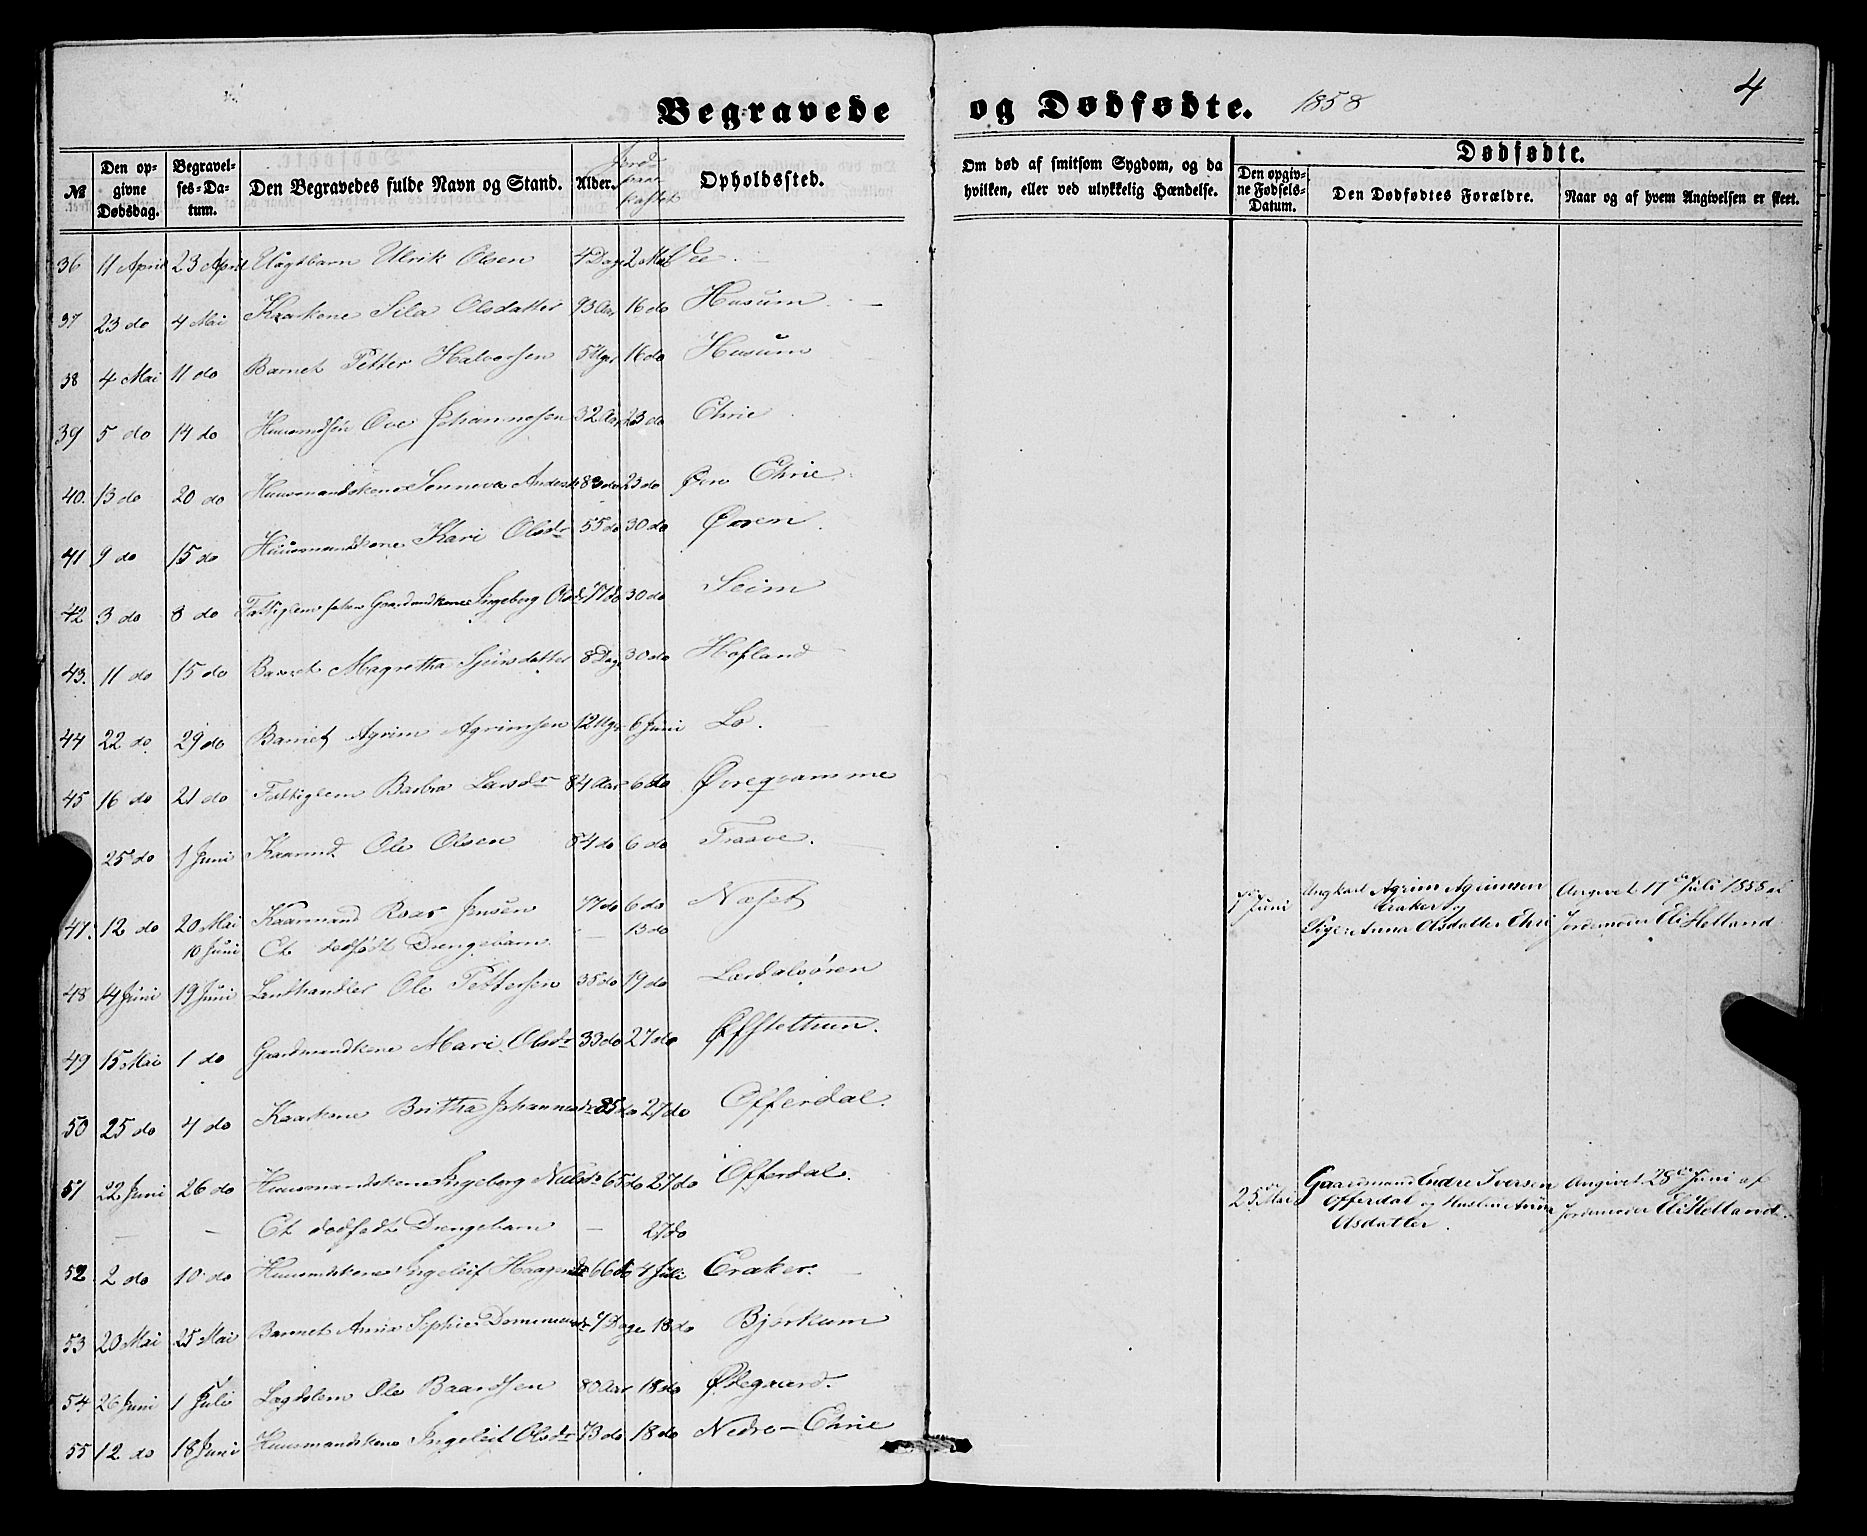 Begravede og Dødfødte. 1858 4
№ Den opgivne Dødsdag. Begravelses-Datum. Den Begravedes fulde Navn og Stand. Alder. Jordpaakastet Opholdssted. Om død af smitsom Sygdom, og da hvilken, eller ved ulykkelig Hændelse. Dødfødte. Den opgivne Fødsels-Datum. Den Dødfødtes Forældre. Naar og af hvem Angivelsen er skeet.
36 11 April 23 April Ulrik Olsen 4 Dage 2 Mai
37 23 do 4 Mai Kaarkone Sila Olsdatter 93 Aar 16 do Husum
38 4 Mai 11 do Barnet Petter Halvorsen 5 Uger 16 do Husum
39 5 do 14 do Huusmdsøn Ove Johannesen 32 Aar 23 do Ehrie
40. 13 do 20 do Huusmandskone Sønneva Andersdr 83 do 23 do Øvre Ehrie
41 9 do 15 do Huusmandskone Kari Olsdr 55 do 30 do Øren.
42 3 do 8 do Fattiglem Gaardmdkone Ingeborg Olsdr 77 do 30 do Seim
43. 11 do 15 do Barnet Magretha Sjursdatter 8 Dage 30 do Hofland
44 22 do 29 do Barnet Agrim Agrimsen 12 Uger 6 Juni Lo.
45 16 do 21 do Fattiglem Barbra Larsdr 84 Aar 6 do Øvregramme
25 do 1 Juni Kaarmd. Ole Olsen 84 do 6 do Traave.
47. 12 do 20 Mai Kaarmand Roar Jensen 77 do 6 do Næset
10 Juni Et dødfødt Drengebarn — 13 do
7 Juni Ungkarl Agrim Agrimsen Eraker og Pige Anna Olsdatter Ehri Angivet 17de Juli 1858 af Jordemoder Eli Helland
48 14 Juni 19 Juni Landhandler Ole Pettersen 35 do 19 do Lærdalsøren
49 15 Mai 1 do Gaardmandkone Mari Olsdr 33 do 27 do Øffstethun.
50 25 do 4 do Kaarkone Britha Johannesdr 85 do 27 do Offerdal.
51 22 Juni 26 do Huusmandskone Ingeborg Nielsdr 65 do 27 do Offerdal.
— — Et dødfødt Drengebarn — 27 do
25de Mai Gaardmand Endre Iversen Offerdal og Hustru Anna Olsdatter. Angivet 28de Juni af Jordemoder Eli Helland
52 2 do 10 do Huusmdskone Ingeleif Haagensdr 66 do 4 Juli Eraker.
53 20 Mai 25 Mai Barnet Anna Sophie 7 Dage 18 do Bjørkum
54 26 Juni 1 Juli Lægdslem Ole Baardsen 80 Aar 18 do Ødegaard.
55 12 do 18 Juni Huusmandskone Ingeleif Olsdr 73 do 18 do Nedre-Ehrie